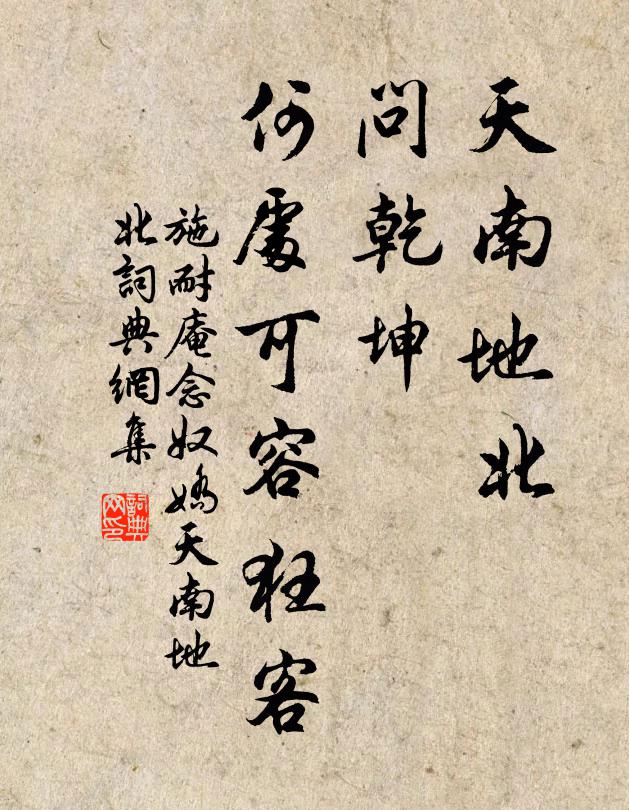 天南地北
問乾坤
何處可容狂客
施耐庵念奴嬌天南地
北詞典網集
詞典
网印